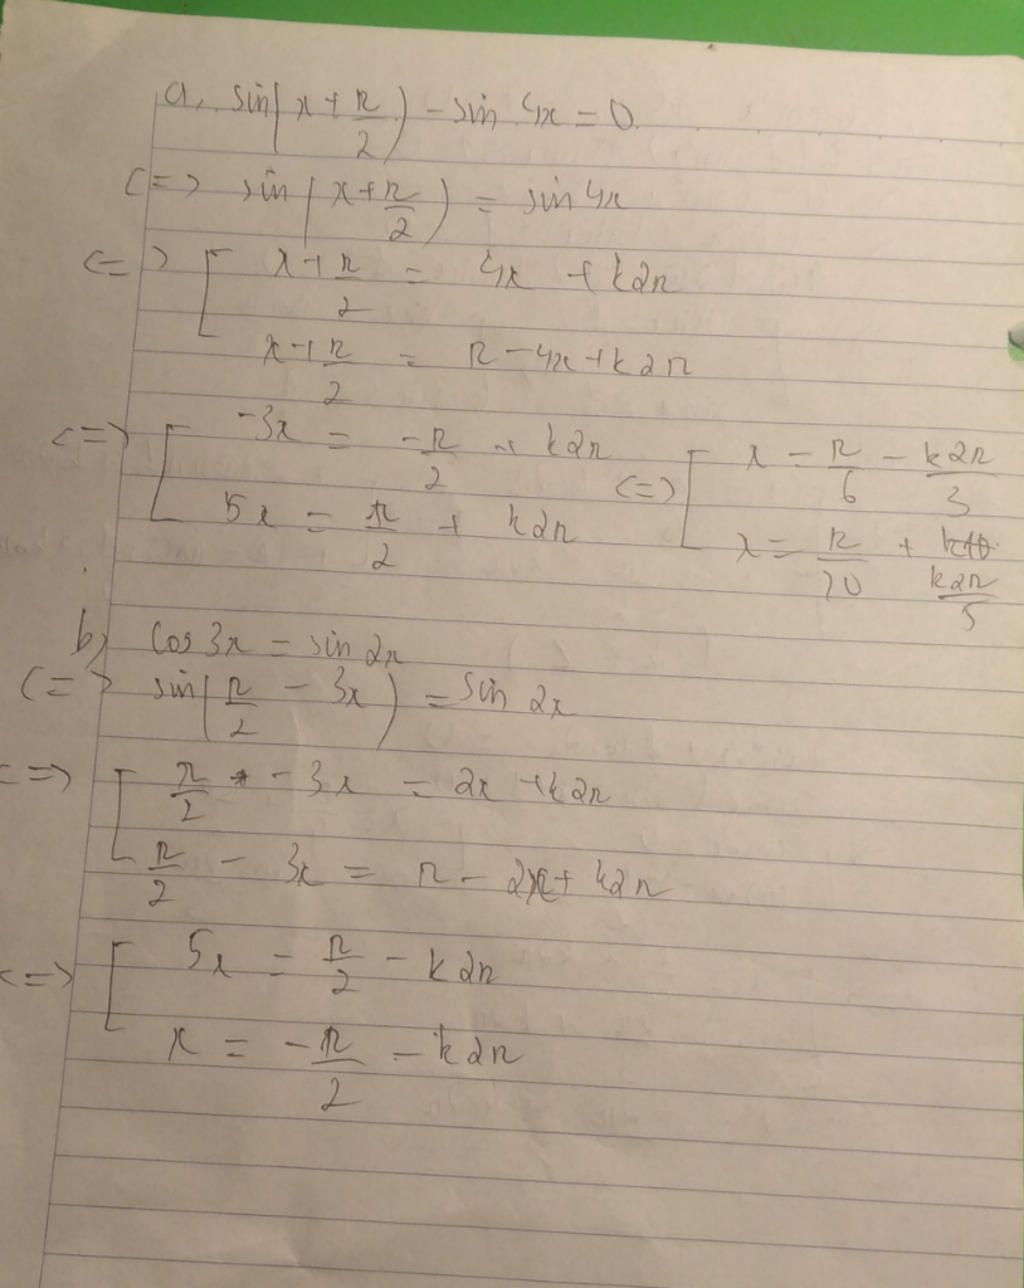 a, sin(x + π/2) - sin 4x = 0
<=> sin(x + π/2) = sin 4x
<=> [ x + π/2 = 4x + k2π
x + π/2 = π - 4x + k2π
<=> [ -3x = -π/2 + k2π <=> [ x = π/6 - k2π/3
5x = π/2 + k2π x = π/10 + k2π/5
b) cos 3x = sin 2x
<=> sin(π/2 - 3x) = sin 2x
<=> [ π/2 - 3x = 2x + k2π
π/2 - 3x = π - 2x + k2π
<=> [ 5x = π/2 - k2π
x = -π/2 - k2π